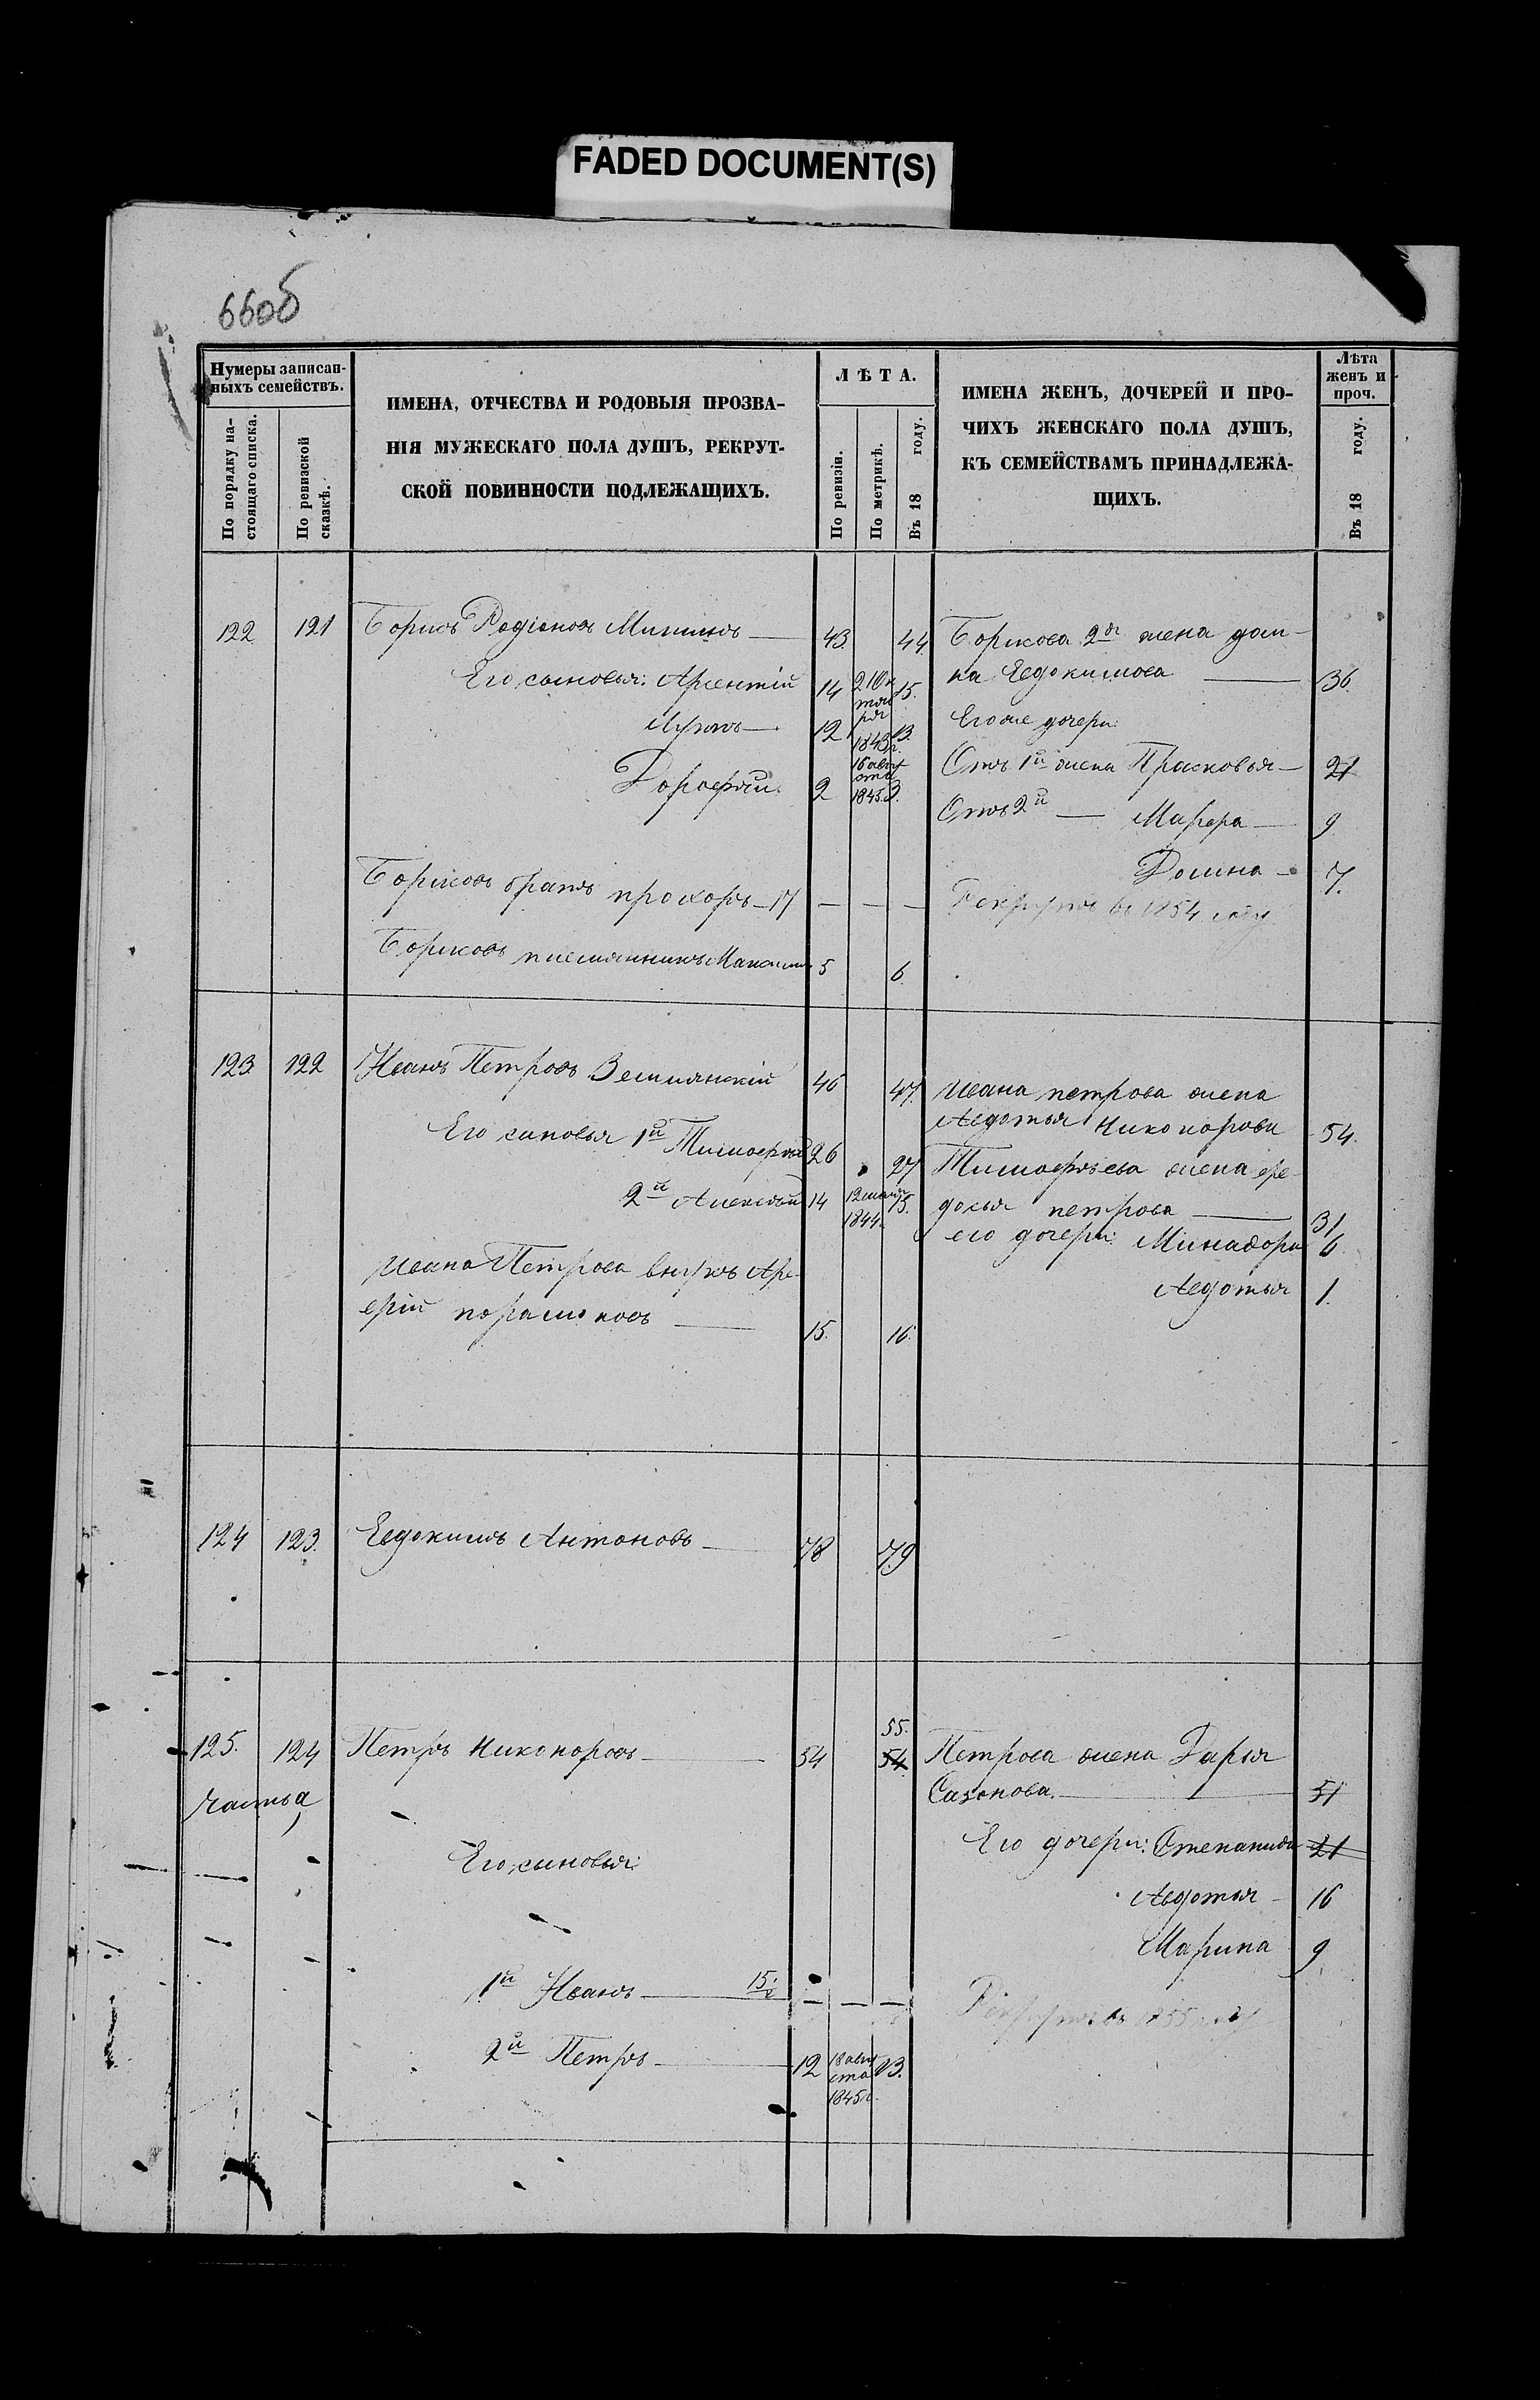 FADED DOCUMENT(S)
66об
Нумеры записан-
ныхъ семействъ.
По порядку на-
стоящаго списка.
По ревизской
сказкѣ.
ИМЕНА, ОТЧЕСТВА И РОДОВЫЯ ПРОЗВА-
НІЯ МУЖЕСКАГО ПОЛА ДУШЪ, РЕКРУТ-
СКОЙ ПОВИННОСТИ ПОДЛЕЖАЩИХЪ.
ЛѢТА.
По ревизіи.
По метрикѣ.
Въ 18 году.
ИМЕНА ЖЕНЪ, ДОЧЕРЕЙ И ПРО-
ЧИХЪ ЖЕНСКАГО ПОЛА ДУШЪ,
КЪ СЕМЕЙСТВАМЪ ПРИНАДЛЕЖА-
ЩИХЪ.
Лѣта
женъ и
проч.
Въ 18 году.
122 121 Борисъ Родіоновъ 43. 44. Борисова 2я жена дом-
Его сыновья: Арсентій 14 21 Ок 15. на Евдокимова 36
тяб
ря
Лукъ 12 1843г. 13. Его же дочери:
16 авгу
ста
Дорофѣй 2 1845. 3. Отъ 1й жена Прасковья 21
Отъ 2й — Марфа 9
Домна 7.
Борисовъ братъ прохоръ 17 — — — Рекрутъ въ 1854 году
Борисовъ племянникъ Максимъ 5 6.
123 122 Иванъ Петровъ Землянскій 46 47. Ивана петрова жена
Авдотья Никонорова 54.
Его сыновья 1й Тимофѣй 26 27 Тимофѣева жена фе-
2й Алексѣй 14 12 мая 15. досья петрова 31
1844. его дочери: Минадора 6.
Ивана Петрова внукъ
Авдотья 1.
15. 16.
124 123. Евдокимъ Антоновъ 78 79
55.
125. 124 Петръ Никоноровъ 54 54 Петрова жена Дарья
Сазонова. 51
Часть а
Его сыновья:
Его дочери: Степанида 21
Авдотья 16
Марина 9
1й Иванъ 15 — — — Рекрутъ въ 1855 году
2й Петръ 12 18 авгу 13.
ста
1845г.